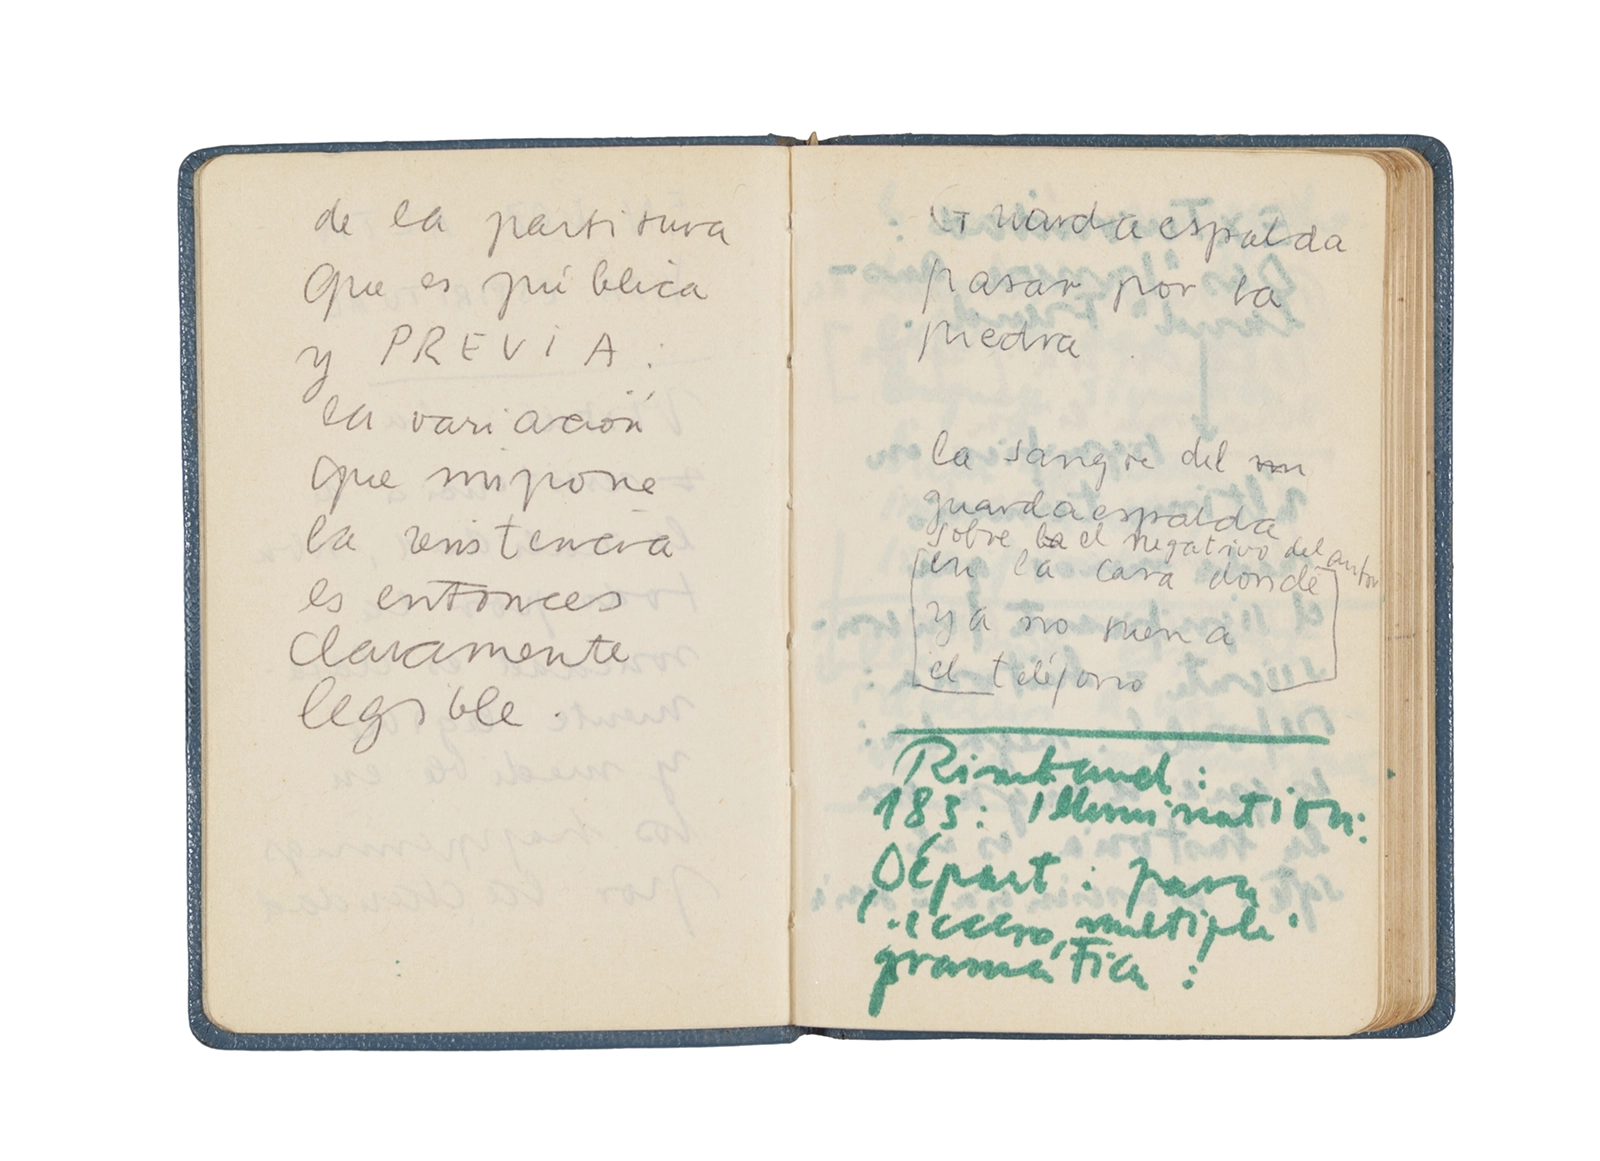 de la partitura
que es pública
y PREVIA:
la variación
que impone
la resistencia
es entonces
claramente
legible.
Guardaespalda
pasar por la
piedra
la sangre del
guardaespalda
sobre el negativo del autor
en la cara donde
ya no suena
el teléfono
Rimbaud:
183: Illumination:
Départ: para
multiple
gramática: